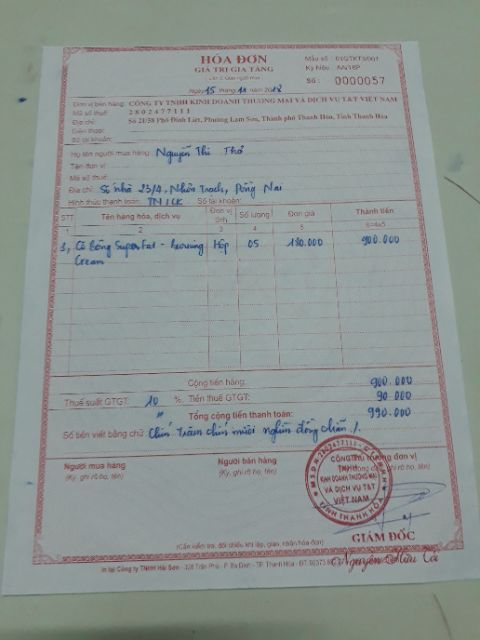 HÓA ĐƠN
GIÁ TRỊ GIA TĂNG
Mẫu số: 01GTKT3/001
Ký hiệu: AA/18P
Số: 0000057
Ngày 15 tháng 11 năm 2018
Đơn vị bán hàng: CÔNG TY TNHH KINH DOANH THƯƠNG MẠI VÀ DỊCH VỤ T&T VIỆT NAM
Mã số thuế: 2802477111
Địa chỉ: Số 21/58 Phố Đinh Liệt, Phường Lam Sơn, Thành phố Thanh Hóa, Tỉnh Thanh Hóa
Điện thoại:
Số tài khoản:
Họ tên người mua hàng: Nguyễn Thị Thổ
Tên đơn vị:
Mã số thuế:
Địa chỉ: Số nhà 23/4, Nhơn Trạch, Đồng Nai
Hình thức thanh toán: TM/CK Số tài khoản:
STT Tên hàng hóa, dịch vụ Đơn vị tính Số lượng Đơn giá Thành tiền
1 2 3 4 5 6=4x5
1, Cỏ Hộp 05 180.000 900.000
Cream
Cộng tiền hàng: 900.000
Thuế suất GTGT: 10 % Tiền thuế GTGT: 90.000
Tổng cộng tiền thanh toán: 990.000
Số tiền viết bằng chữ: Chín trăm chín mươi nghìn đồng chẵn /.
Người mua hàng Người bán hàng
(Ký, ghi rõ họ, tên) (Ký, ghi rõ họ, tên)
M.S.D.N: 2802477111
CÔNG TY
TNHH
KINH DOANH THƯƠNG MẠI
VÀ DỊCH VỤ T&T
VIỆT NAM
TỈNH THANH HÓA
GIÁM ĐỐC
(Cần kiểm tra, đối chiếu khi lập, giao, nhận hóa đơn)
In tại Công ty TNHH Hải Sơn